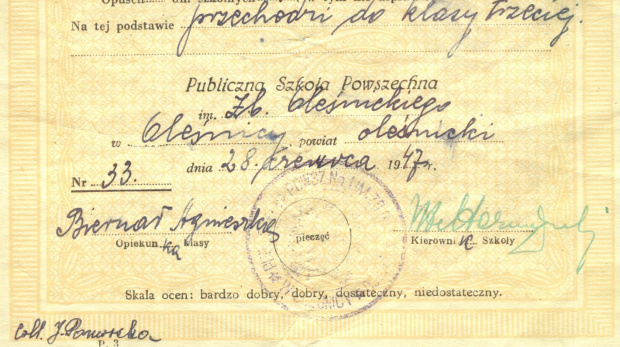 Na tej podstawie przechodzi do klasy trzeciej.
Publiczna Szkoła Powszechna
im. Zb. Oleśnickiego
w Oleśnicy powiat oleśnicki
dnia 28 czerwca 1947 r.
Nr 33.
Biernat Agnieszka
Opiekunka klasy
pieczęć
Kierownik Szkoły
Skala ocen: bardzo dobry, dobry, dostateczny, niedostateczny.
Coll. J. Pomorska
P. 3